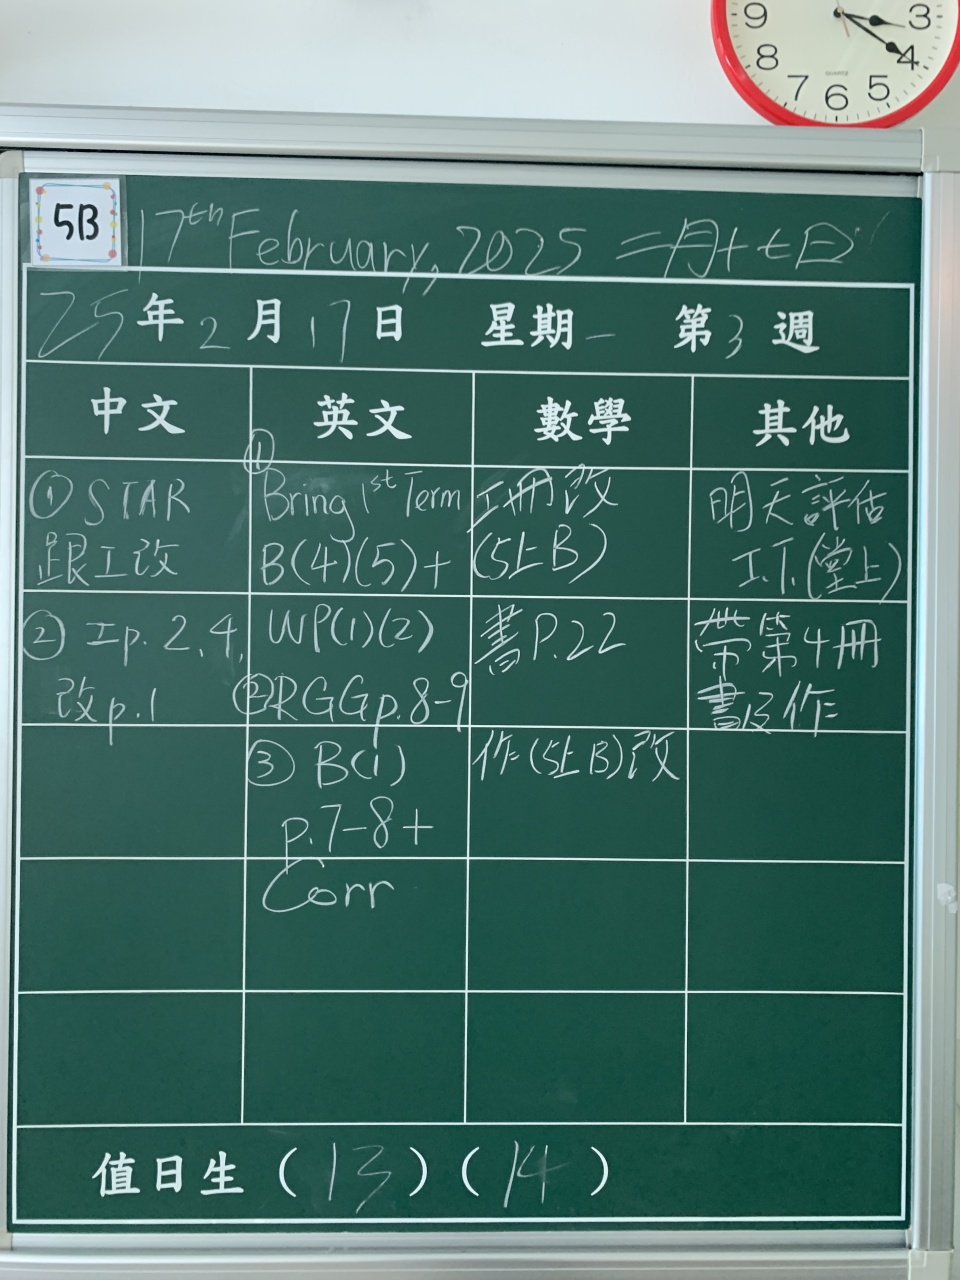 9 3
8 4
7 6 5
QUARTZ
5B 17th February, 2025 二月十七日
25年2月17日 星期一 第3週
中文 英文 數學 其他
① STAR
跟工改
② 工p. 2,4,
改p.1
① Bring 1st Term
B(4)(5)+
WP(1)(2)
② RGG p.8-9
③ B(1)
p.7-8+
Corr
工冊改
(5上B)
書P.22
作(5上B)改
明天評估
I.T.(堂上)
帶第4冊
書及作
值日生(13)(14)